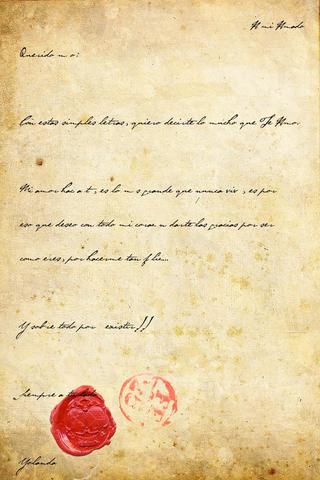 A mi Amado
Querido m o:
Con estas simples letras, quiero decirte lo mucho que Te Amo.
Mi amor hac a t , es lo m s grande que nunca viv , es por
eso que deseo con todo mi coraz n darte las gracias por ser
como eres, por hacerme tan f liz...
Y sobre todo por existir!!
Siempre a tu lado
Yolanda